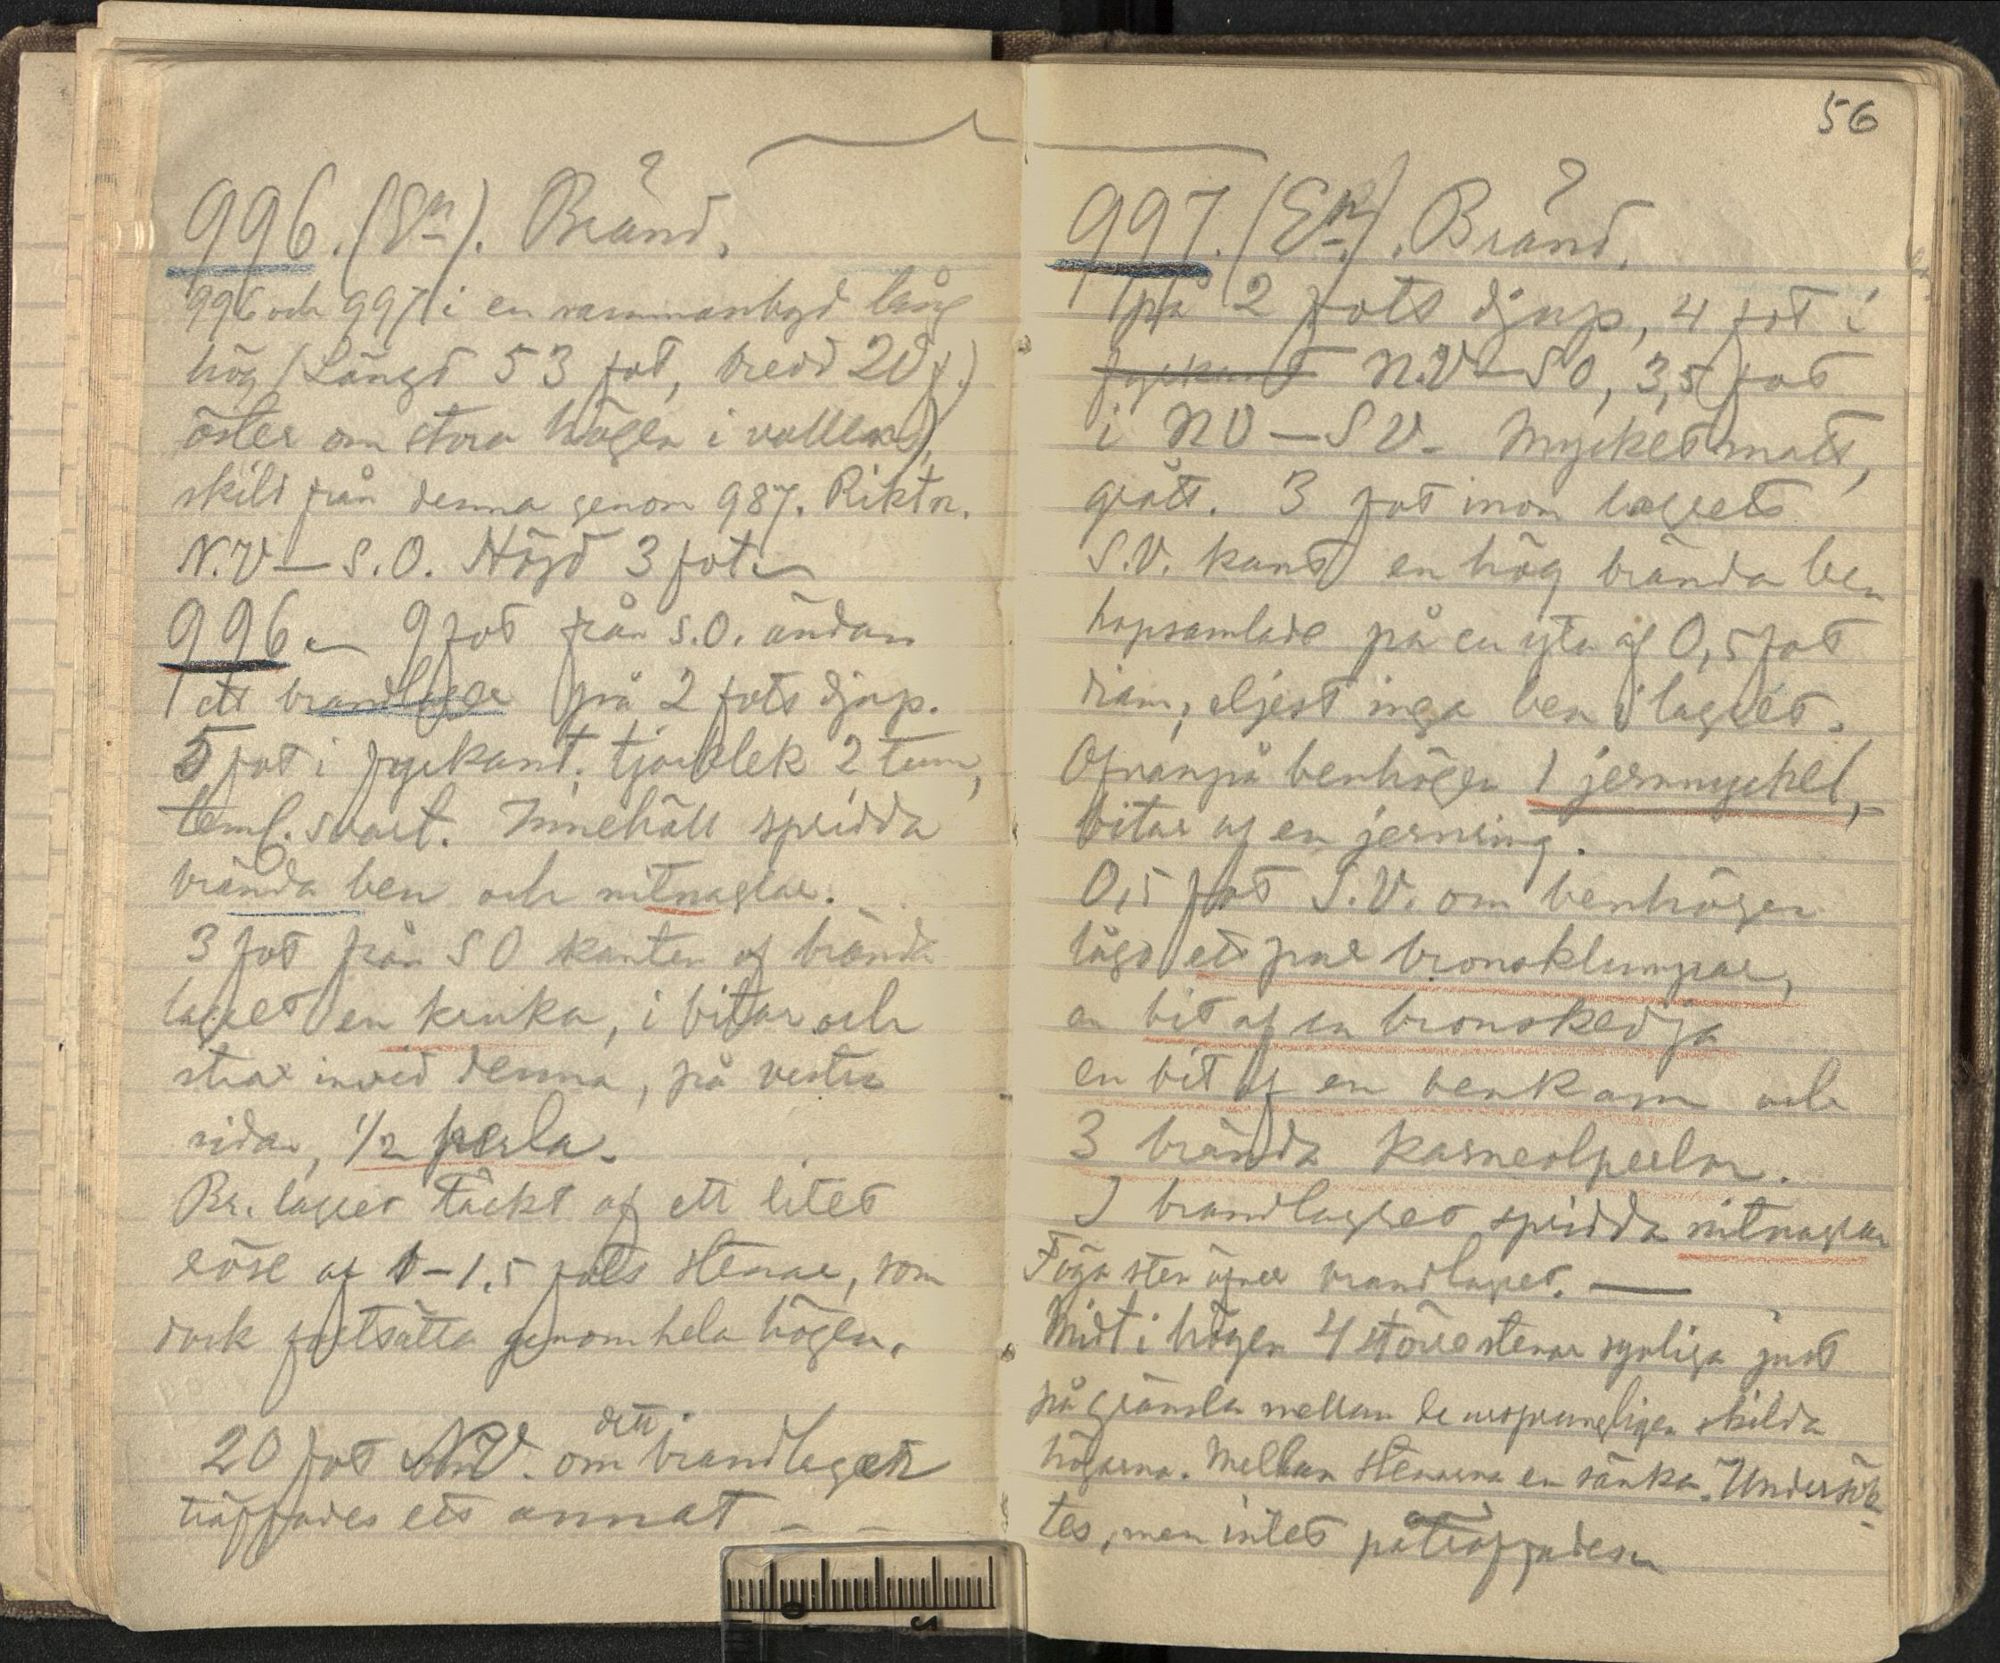 996. (En). Bränd.
996 och 997 i en sammanbygd lång
hög (Längd 53 fot, bredd 20 f.)
öster om stora högen i vallens,
skild från denna genom 987. Riktn.
N.V – S.O. Höjd 3 fot. –
996. – 9 fot från S.O. ändan
ett brandlager på 2 fots djup.
5 fot i fyrkant, tjocklek 2 tum,
teml. svart. Innehöll spridda
brända ben och nitnaglar.
3 fot från SO kanten af brända
lagret en kruka, i bitar och
strax invid denna, på vestra
sidan, 1/2 perla.
Br. lagret täckt af ett litet
röse af 1 – 1.5 fots stenar, som
dock fortsätta genom hela högen.
20 fot N.V. om dett brandlager
träffades ett annat – –
56
997. (En). Bränd.
på 2 fots djup, 4 fot i
fyrkant N.V – SO, 3,5 fot
i NO – SV. Mycket matt,
grått. 3 fot inom lagrets
S.V. kant en hög brända ben
hopsamlade på en yta af 0,5 fot
diam, eljest inga ben i lagret.
Ofvanpå benhögen 1 jernnyckel,
bitar af en jernring.
0,5 fot S.V. om benhögen
lågo ett par bronsklumpar,
en bit af en bronskedja
en bit af en benkam och
3 brända karneolperlor.
I brandlagret spridda nitnaglar
Föga sten öfver brandlagret. —
Midt i högen 4 större stenar synliga just
på gränsen mellan de ursprungligen skilda
högarna. Mellan stenarna en sänka. Undersök-
tes, men intet påträffades –